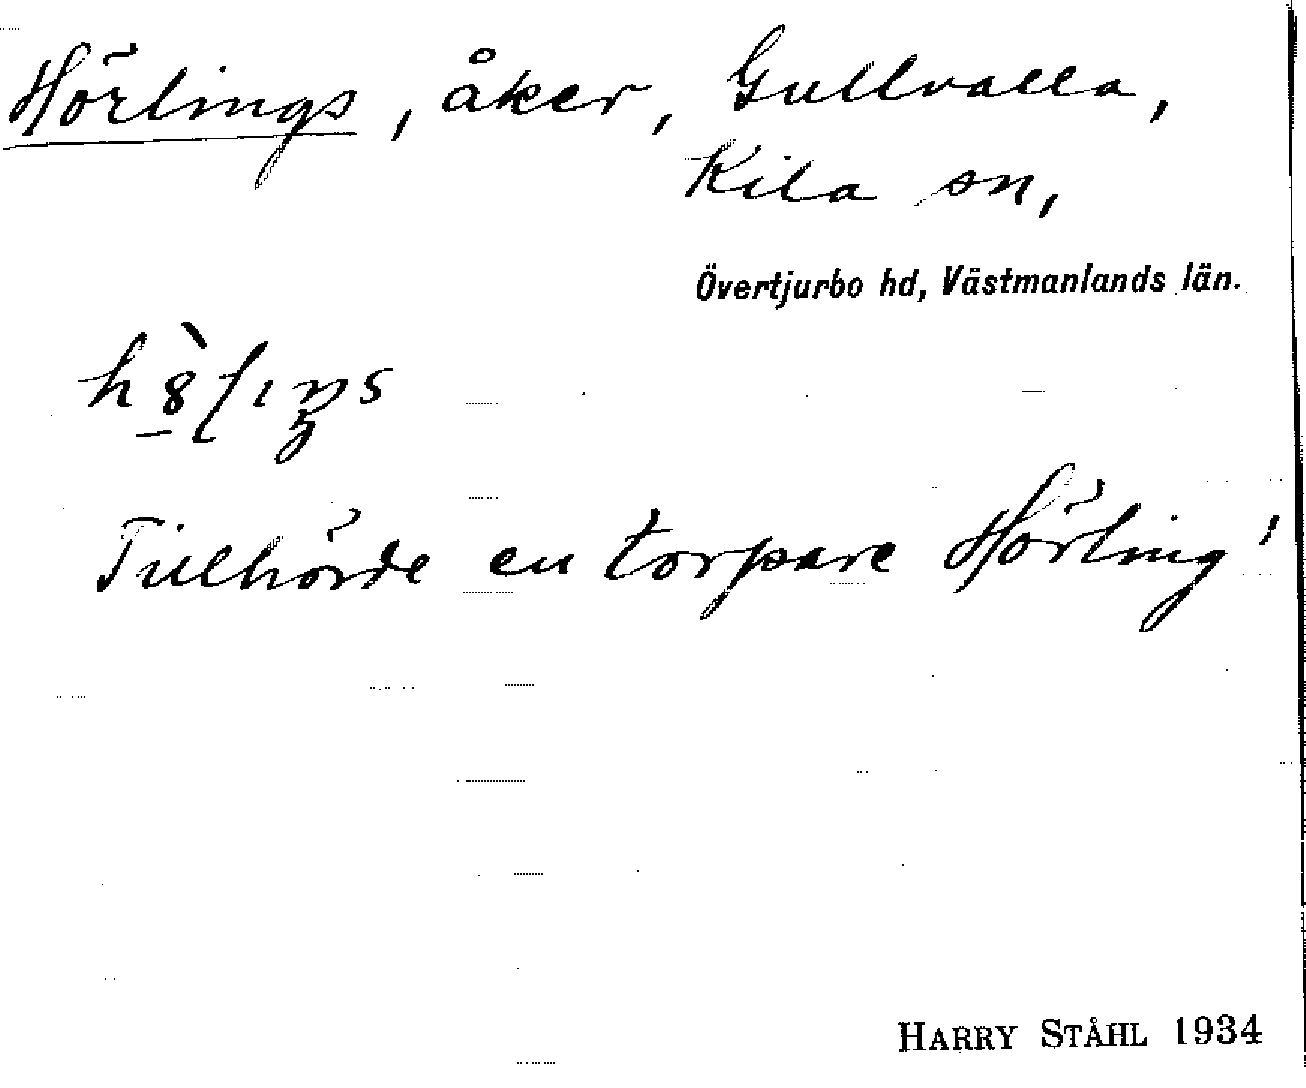 Hörlings, åker, Gullvalla,
Kila sn,
Övertjurbo hd, Västmanlands län.
Tillhörde en torpare Hörling!
HARRY STÅHL 1934